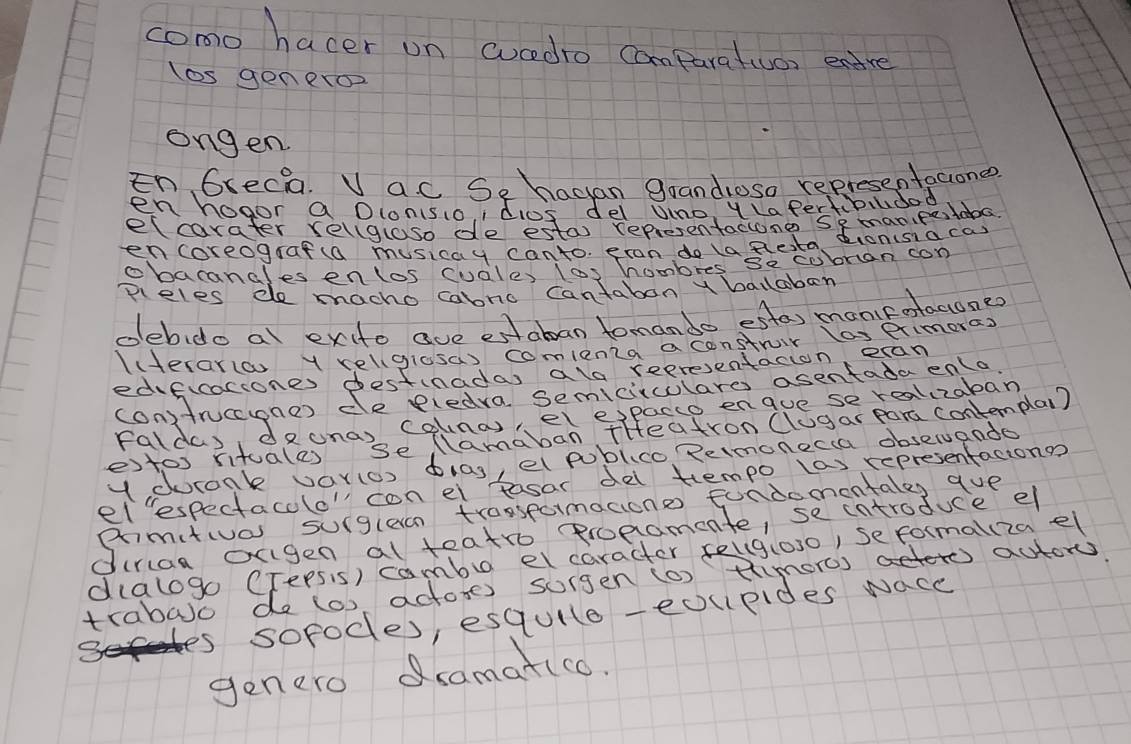 como hacer un cuadro comparativos entre
los generos
origen.
En Grecia. V ac Se hacian grandiosa representaciones
en hogor a Dionisio, dios del vino, y La fertibilidad
el carater religioso de estas representaciones se manifestaba.
en coreografia musica y canto. eran de la fiesta dionisiacas
o bacanales en los cuales los hombres se cubrian con
Pieles de macho cabrio cantaban y bailaban
debido al exito que estaban tomando estas manifestaciones
literarias y religiosas comienza a construir las primeras
edificaciones destinadas a la representacion, eran
construcciones de piedra semicirculares asentada en la.
Faldas, de unas colinas, el espacio en que se realizaban
estos rituales se llamaban Theatron (lugar para contemplar)
y durante varios dias, el publico Permonecia observando
el "espectaculo" con el pasar del tiempo las representaciones
primitivas surgieron transformaciones fundamentales que
dirian origen al teatro propiamente, se introduce el
dialogo (Tepsis) cambio el caracter religioso, se formaliza el
trabajo de los actores surgen los primeros autores.
sofocles, esquilo - euripides Nace
genero dramatico.